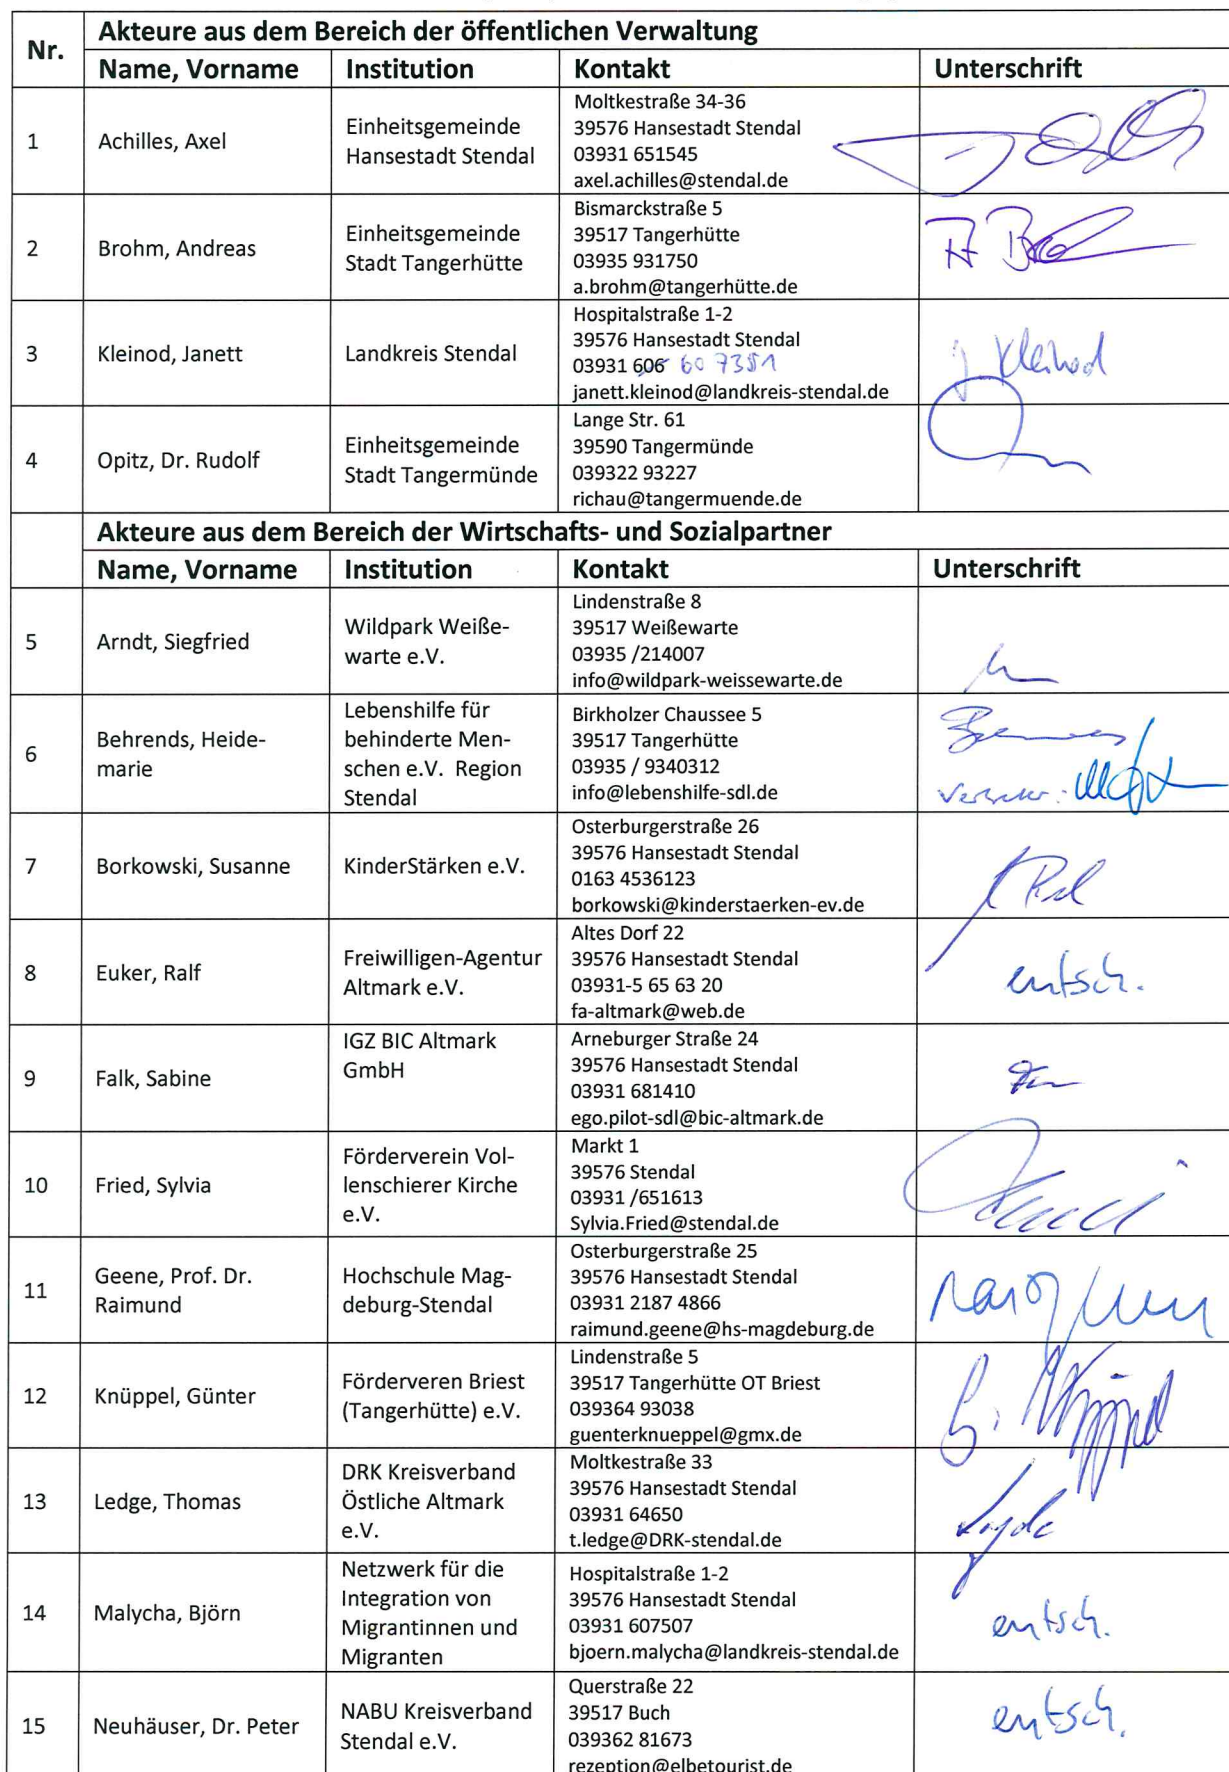 Nr.
Akteure aus dem Bereich der öffentlichen Verwaltung
Name, Vorname Institution Kontakt Unterschrift
1
Achilles, Axel
Einheitsgemeinde
Hansestadt Stendal
Moltkestraße 34-36
39576 Hansestadt Stendal
03931 651545
axel.achilles@stendal.de
2
Brohm, Andreas
Einheitsgemeinde
Stadt Tangerhütte
Bismarckstraße 5
39517 Tangerhütte
03935 931750
a.brohm@tangerhütte.de
3
Kleinod, Janett
Landkreis Stendal
Hospitalstraße 1-2
39576 Hansestadt Stendal
03931 606 60 7351
janett.kleinod@landkreis-stendal.de
J. Kleinod
4
Opitz, Dr. Rudolf
Einheitsgemeinde
Stadt Tangermünde
Lange Str. 61
39590 Tangermünde
039322 93227
richau@tangermuende.de
Akteure aus dem Bereich der Wirtschafts- und Sozialpartner
Name, Vorname Institution Kontakt Unterschrift
5
Arndt, Siegfried
Wildpark Weiße-
warte e.V.
Lindenstraße 8
39517 Weißewarte
03935 /214007
info@wildpark-weissewarte.de
6
Behrends, Heide-
marie
Lebenshilfe für
behinderte Men-
schen e.V. Region
Stendal
Birkholzer Chaussee 5
39517 Tangerhütte
03935 / 9340312
info@lebenshilfe-sdl.de
7
Borkowski, Susanne
KinderStärken e.V.
Osterburgerstraße 26
39576 Hansestadt Stendal
0163 4536123
borkowski@kinderstaerken-ev.de
8
Euker, Ralf
Freiwilligen-Agentur
Altmark e.V.
Altes Dorf 22
39576 Hansestadt Stendal
03931-5 65 63 20
fa-altmark@web.de
entsch.
9
Falk, Sabine
IGZ BIC Altmark
GmbH
Arneburger Straße 24
39576 Hansestadt Stendal
03931 681410
ego.pilot-sdl@bic-altmark.de
10
Fried, Sylvia
Förderverein Vol-
lenschierer Kirche
e.V.
Markt 1
39576 Stendal
03931 /651613
Sylvia.Fried@stendal.de
11
Geene, Prof. Dr.
Raimund
Hochschule Mag-
deburg-Stendal
Osterburgerstraße 25
39576 Hansestadt Stendal
03931 2187 4866
raimund.geene@hs-magdeburg.de
12
Knüppel, Günter
Förderveren Briest
(Tangerhütte) e.V.
Lindenstraße 5
39517 Tangerhütte OT Briest
039364 93038
guenterknueppel@gmx.de
13
Ledge, Thomas
DRK Kreisverband
Östliche Altmark
e.V.
Moltkestraße 33
39576 Hansestadt Stendal
03931 64650
t.ledge@DRK-stendal.de
14
Malycha, Björn
Netzwerk für die
Integration von
Migrantinnen und
Migranten
Hospitalstraße 1-2
39576 Hansestadt Stendal
03931 607507
bjoern.malycha@landkreis-stendal.de
entsch.
15
Neuhäuser, Dr. Peter
NABU Kreisverband
Stendal e.V.
Querstraße 22
39517 Buch
039362 81673
rezeption@elbetourist.de
entsch.